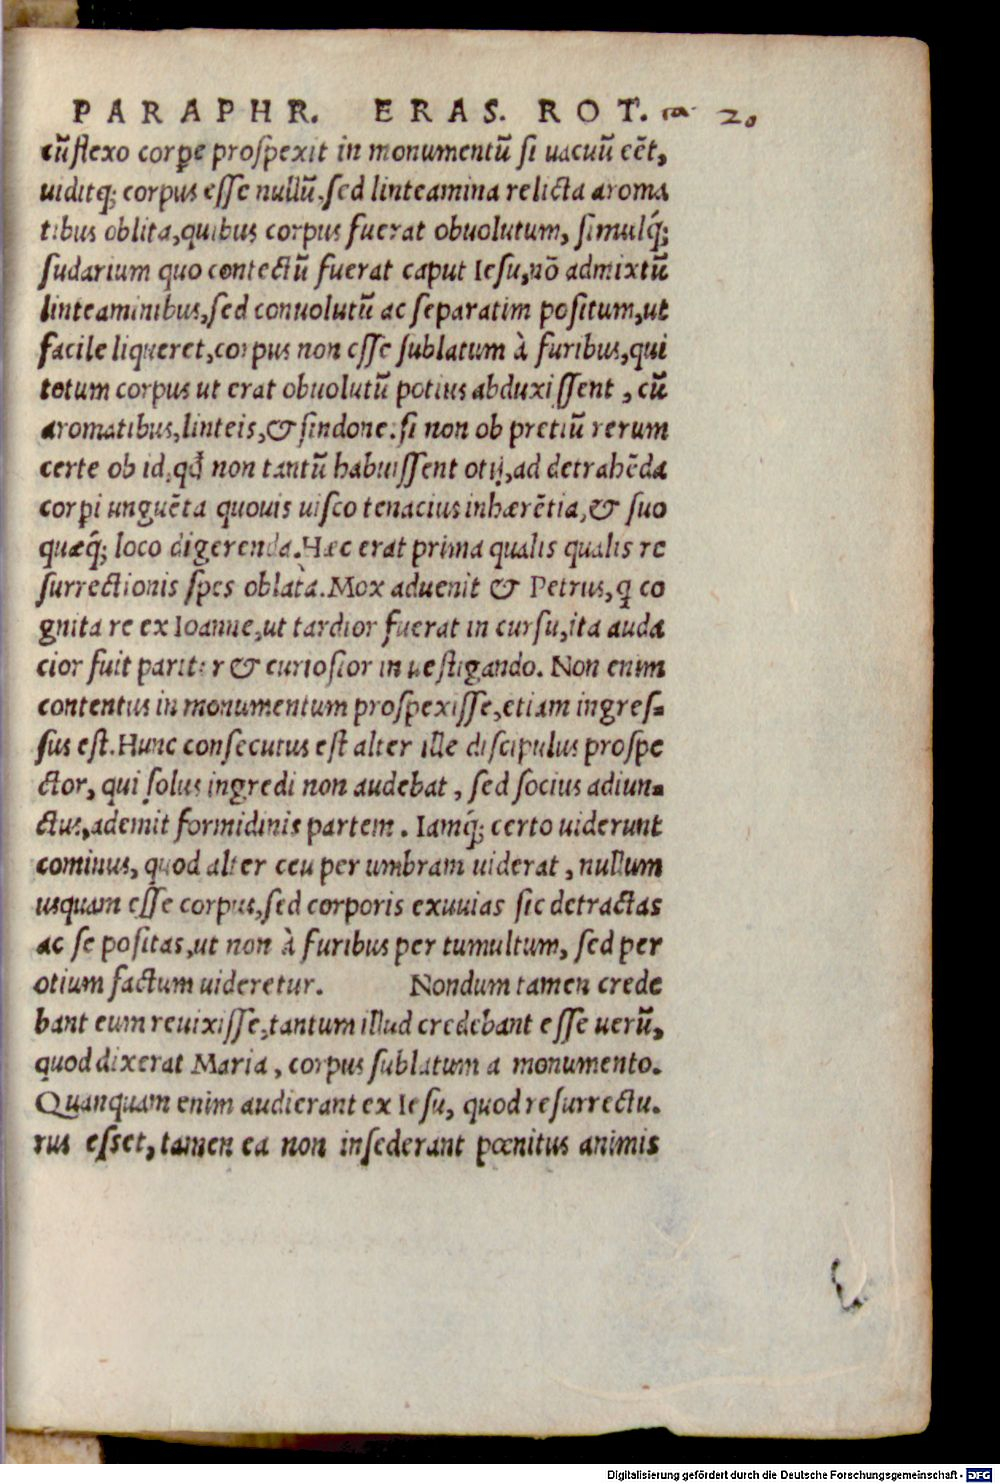 PARAPHR. ERAS. ROT. 20
cũflexo corpe prospexit in monumentũ si uacuũ eēt,
uiditq; corpus esse nullũ, sed linteamina relicta aroma
tibus oblita, quibus corpus fuerat obuolutum, simulq́;
sudarium quo contectũ fuerat caput Iesu, nō admixtũ
linteaminibus, sed conuolutũ ac separatim positum, ut
facile liqueret, corpus non esse sublatum à furibus, qui
totum corpus ut erat obuolutũ potius abduxissent, cũ
aromatibus, linteis, & sindone. si non ob pretiũ rerum
certe ob id, qđ non tantũ habuissent otij, ad detrahēda
corpi unguēta quouis uisco tenacius inhærētia, & suo
quæq́; loco digerenda. Hæc erat prima qualis qualis re
surrectionis spes oblata. Mox aduenit & Petrus, q co
gnita re ex Ioanne, ut tardior fuerat in cursu, ita auda
cior fuit pariter & curiosior in uestigando. Non enim
contentus in monumentum prospexisse, etiam ingres-
sus est. Hunc consecutus est alter ille discipulus prospe
ctor, qui solus ingredi non audebat, sed socius adiun-
ctus, ademit formidinis partem. Iamq́; certo uiderunt
cominus, quod alter ceu per umbram uiderat, nullum
usquam esse corpus, sed corporis exuuias sic detractas
ac se positas, ut non à furibus per tumultum, sed per
otium factum uideretur. Nondum tamen crede
bant eum reuixisse, tantum illud credebant esse uerũ,
quod dixerat Maria, corpus sublatum a monumento.
Quanquam enim audierant ex Iesu, quod resurrectu.
rus esset, tamen ea non insederant pœnitus animis
Digitalisierung gefördert durch die Deutsche Forschungsgemeinschaft - DFG